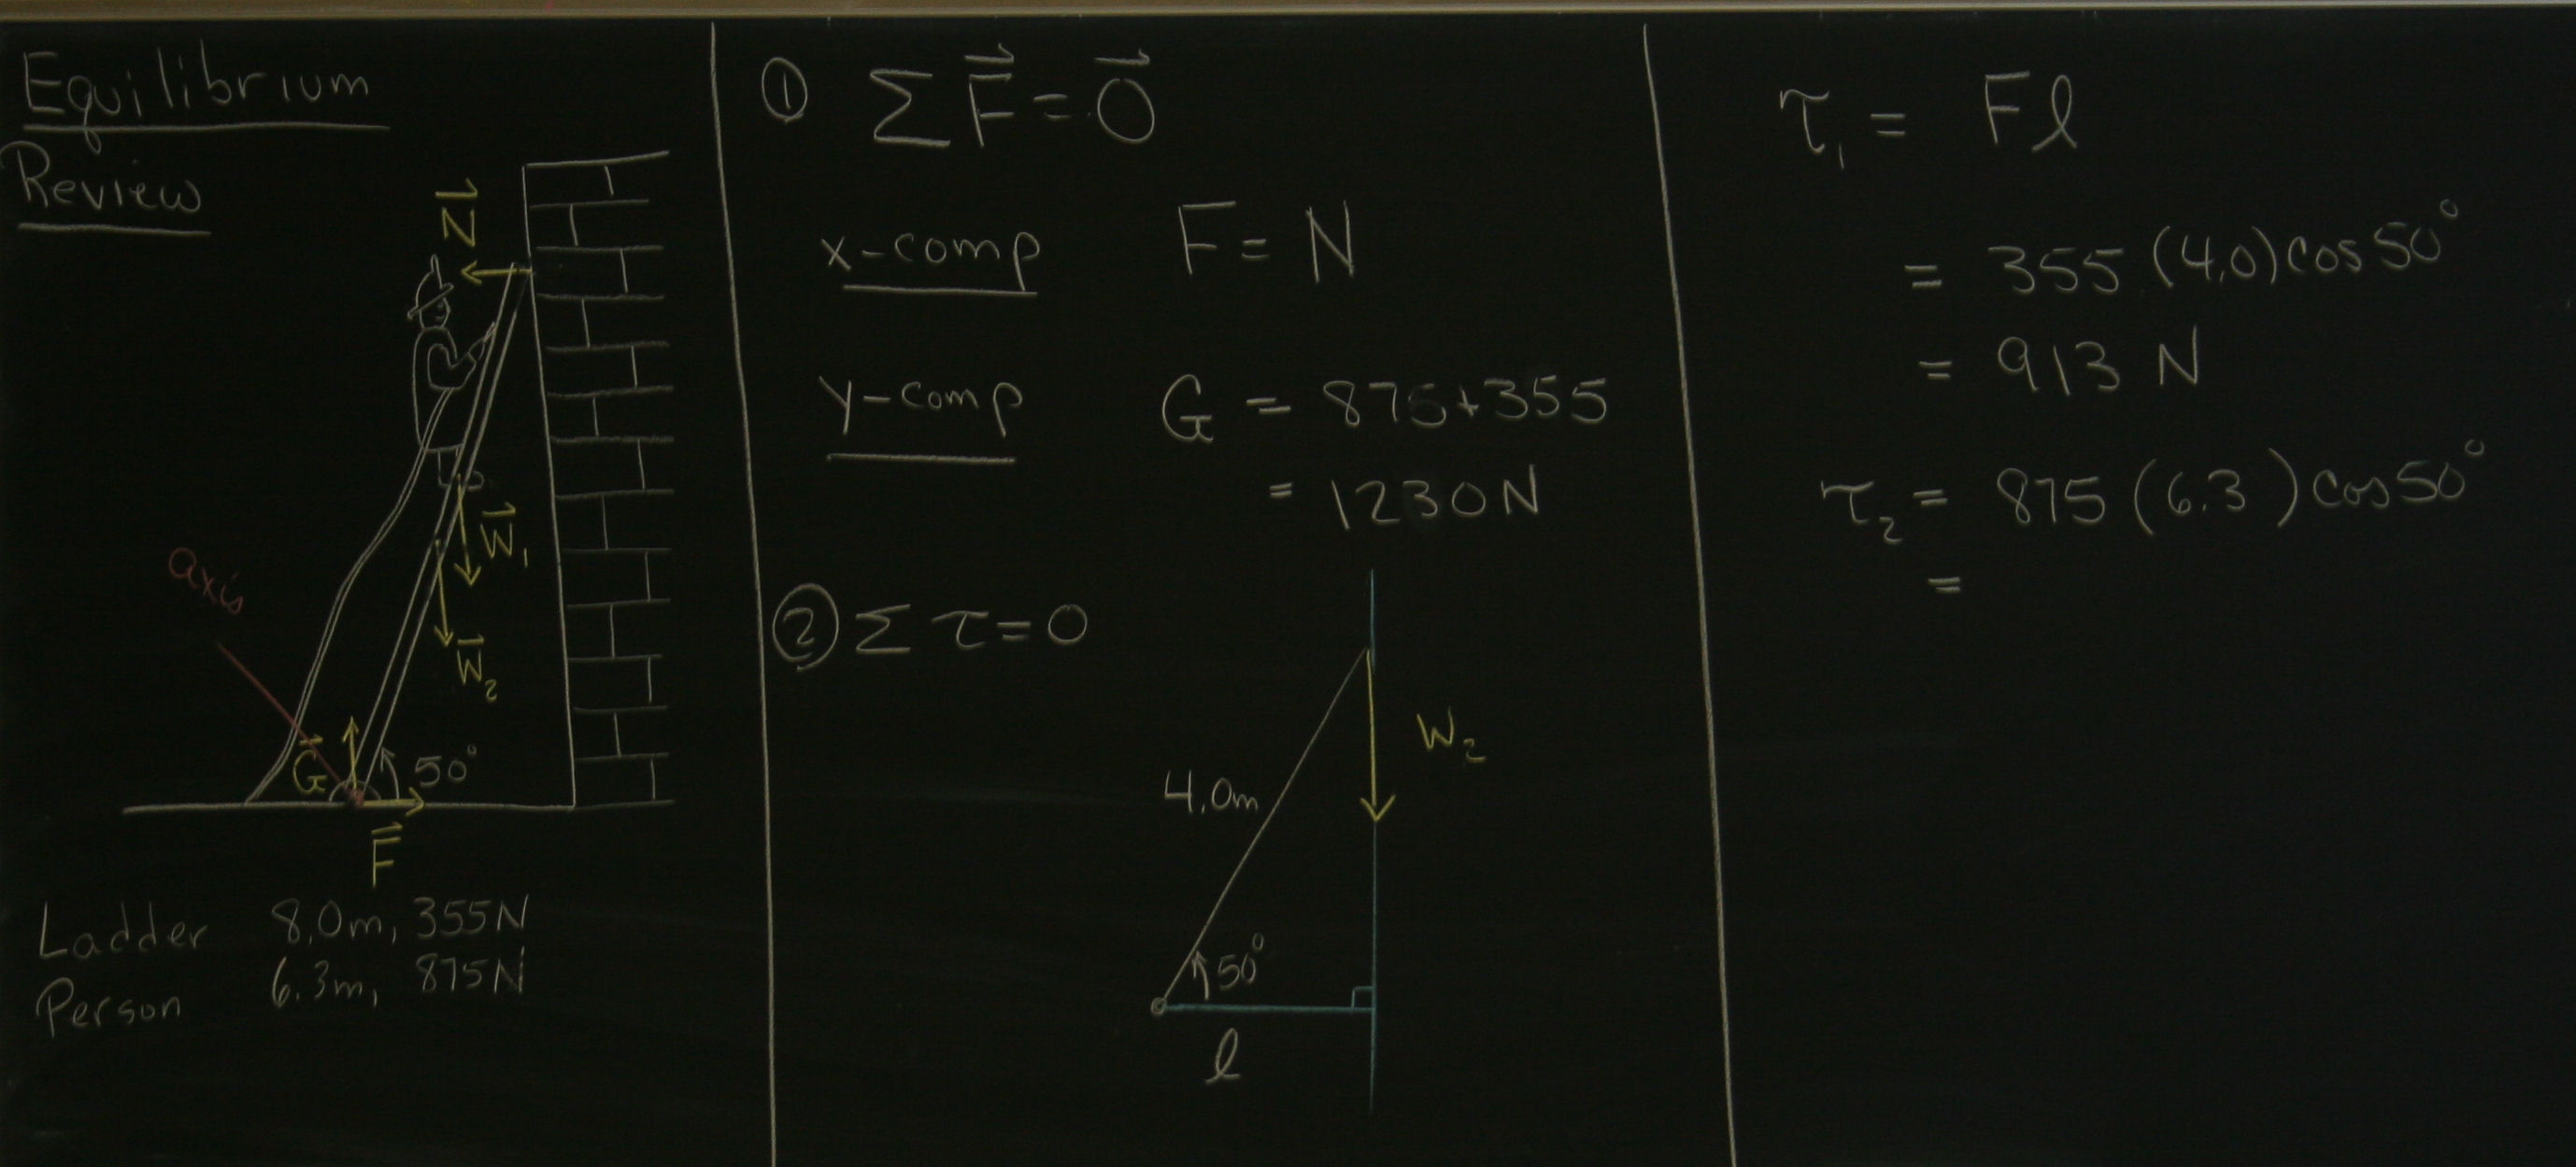 Equilibrium
Review
N⃗
W⃗₁
W⃗₂
axis
G⃗
50°
F⃗
Ladder 8.0m, 355N
Person 6.3m, 875N
① ΣF⃗ = 0⃗
x-comp F = N
y-comp G = 875+355
= 1230N
② Στ=0
W₂
4.0m
50°
ℓ
τ₁ = Fℓ
= 355(4.0)cos50°
= 913 N
τ₂ = 875(6.3)cos50°
=